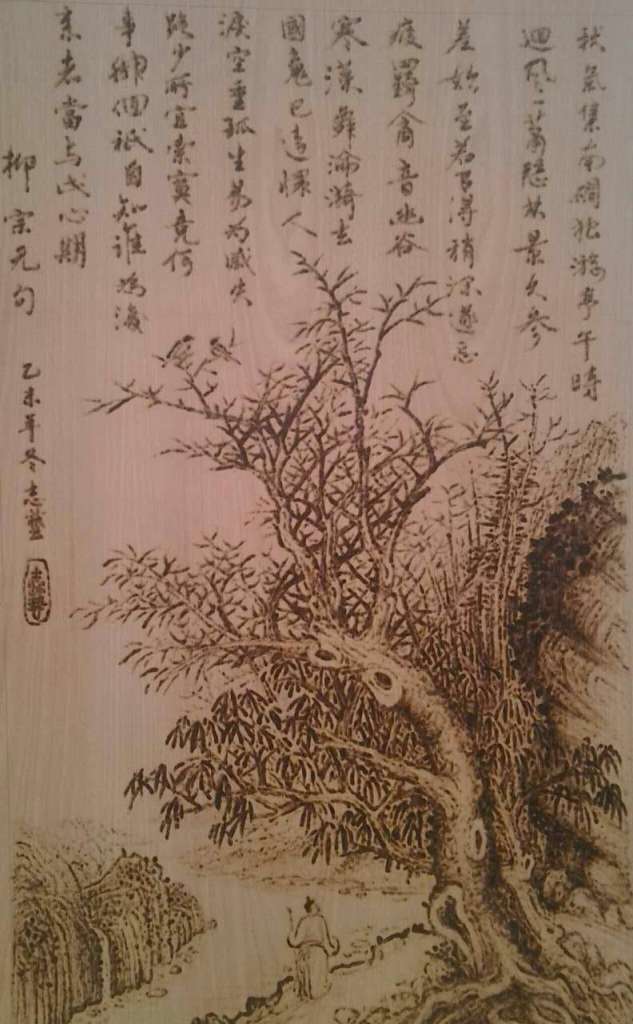 秋氣集南磵独游亭午時
迴風一蕭隱林景久參
差始至若有得稍深遂忘
疲羈禽音幽谷
寒漢舞淪漪去
國魂已遠懷人
淚空垂孤生易為感失
路少所宜索寞竟何
事徘徊祇自知誰為後
来者當与此心期
柳宗元句
乙未年冬志